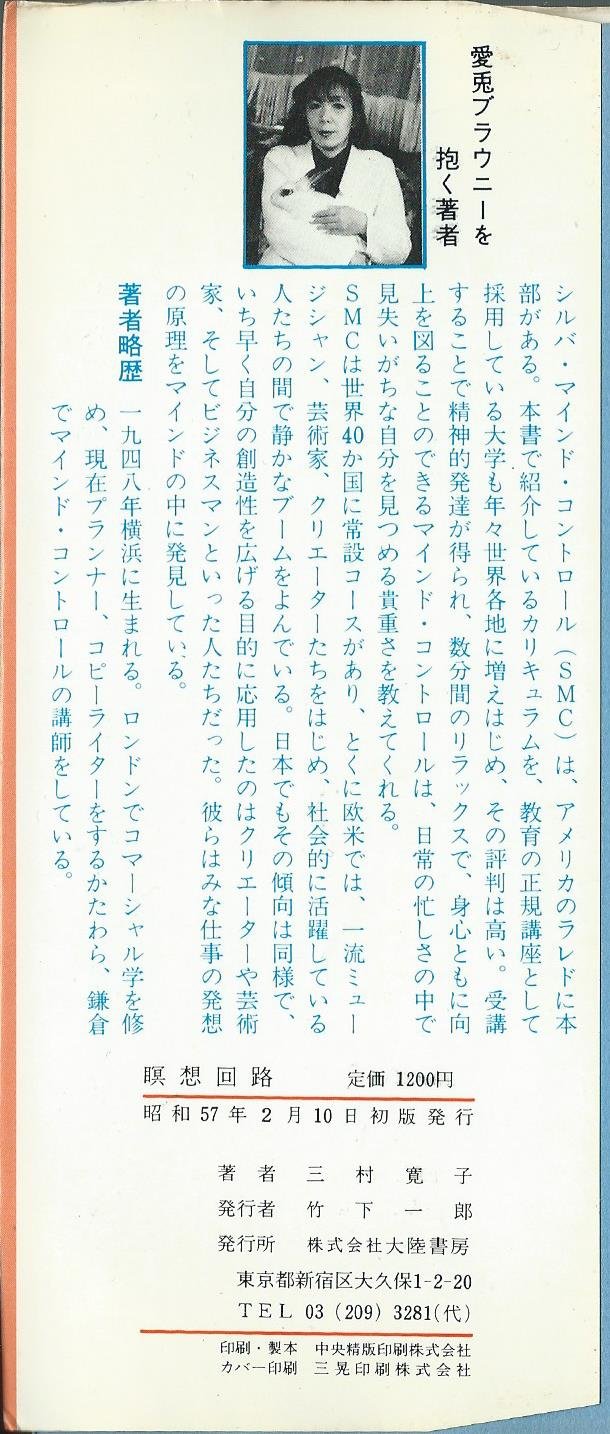 愛兎ブラウニーを
抱く著者
シルバ・マインド・コントロール(SMC)は、アメリカのラレドに本
部がある。本書で紹介しているカリキュラムを、教育の正規講座として
採用している大学も年々世界各地に増えはじめ、その評判は高い。受講
することで精神的発達が得られ、数分間のリラックスで、身心ともに向
上を図ることのできるマインド・コントロールは、日常の忙しさの中で
見失いがちな自分を見つめる貴重さを教えてくれる。
SMCは世界40か国に常設コースがあり、とくに欧米では、一流ミュー
ジシャン、芸術家、クリエーターたちをはじめ、社会的に活躍している
人たちの間で静かなブームをよんでいる。日本でもその傾向は同様で、
いち早く自分の創造性を広げる目的に応用したのはクリエーターや芸術
家、そしてビジネスマンといった人たちだった。彼らはみな仕事の発想
の原理をマインドの中に発見している。
著者略歴 一九四八年横浜に生まれる。ロンドンでコマーシャル学を修
め、現在プランナー、コピーライターをするかたわら、鎌倉
でマインド・コントロールの講師をしている。
瞑想回路 定価 1200円
昭和57年2月10日初版発行
著者 三村寛子
発行者 竹下一郎
発行所 株式会社大陸書房
東京都新宿区大久保1-2-20
TEL 03 (209) 3281(代)
印刷・製本 中央精版印刷株式会社
カバー印刷 三晃印刷株式会社